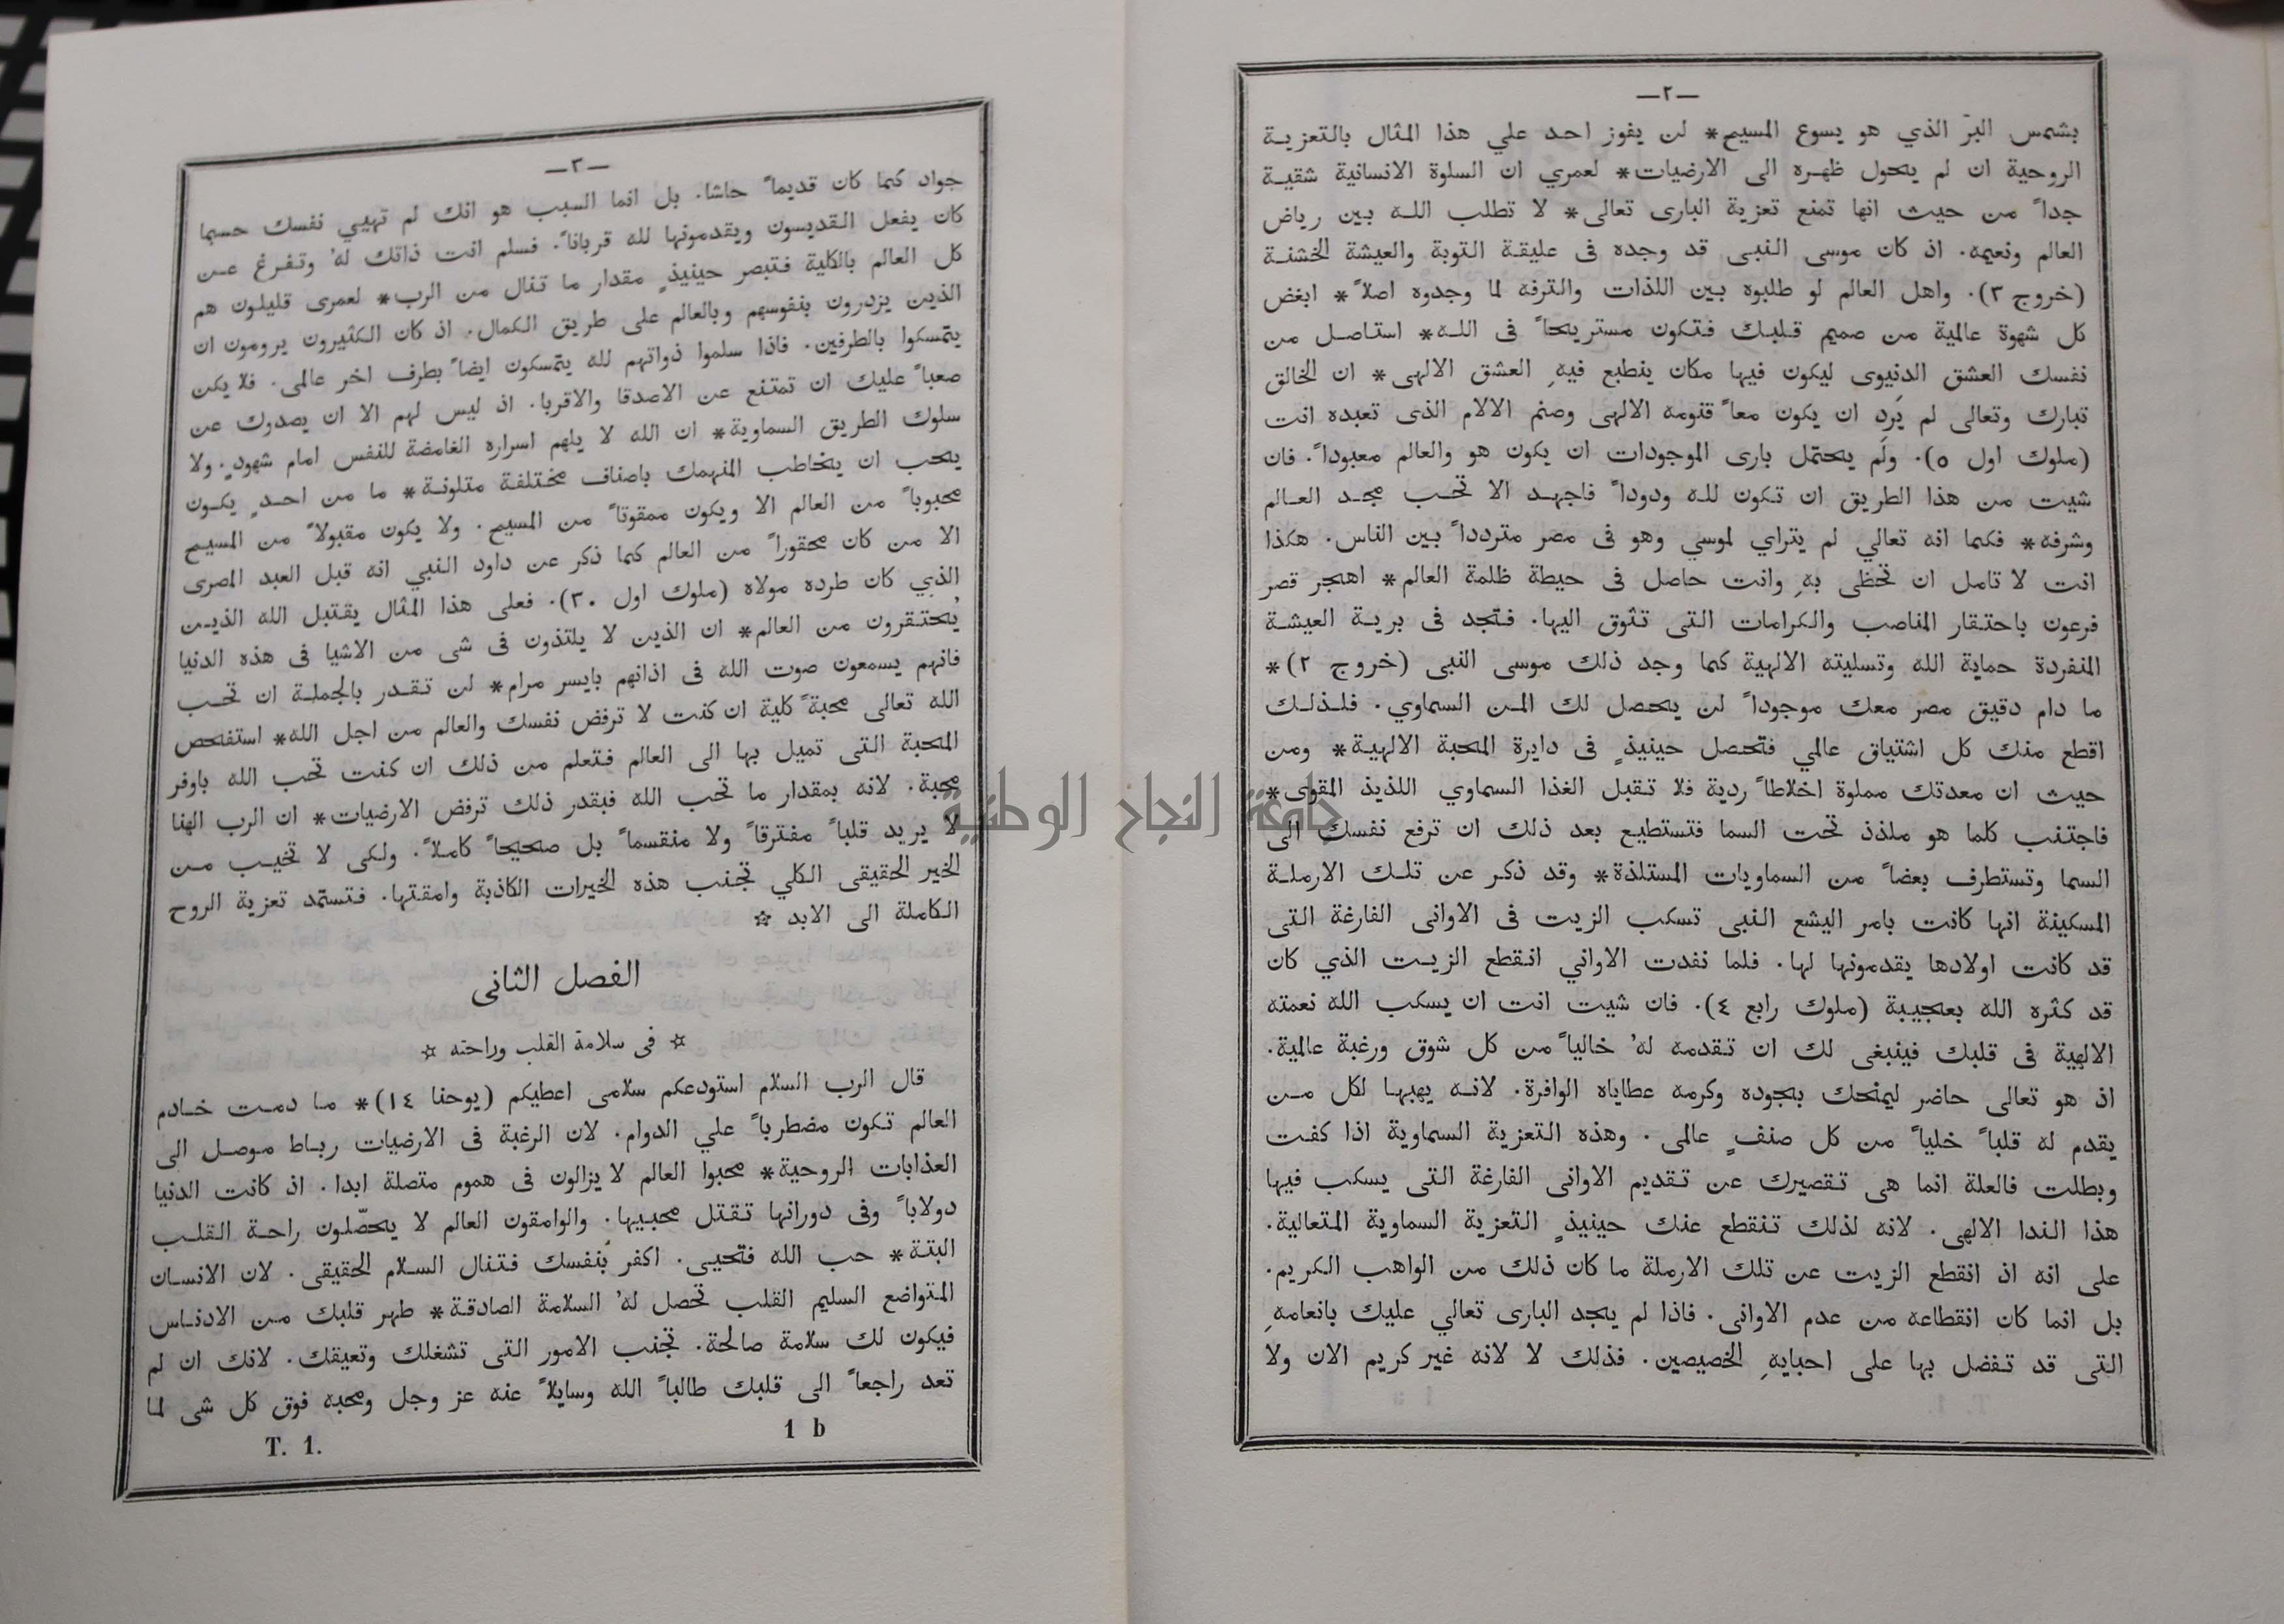 —٢—
بشمس البرّ الذي هو يسوع المسيح* لن يفوز احد علي هذا المثال بالتعزية
الروحية ان لم يتحول ظهره الى الارضيات* لعمري ان السلوة الانسانية شقية
جداً من حيث انها تمنع تعزية البارى تعالى* لا تطلب الله بين رياض
العالم ونعيمه. اذ كان موسى النبى قد وجده فى عليقة التوبة والعيشة الخشنة
(خروج ٣). واهل العالم لو طلبوه بين اللذات والترفه لما وجدوه اصلاً* ابغض
كل شهوة عالمية من صميم قلبك فتكون مستريحاً فى الله* استاصل من
نفسك العشق الدنيوى ليكون فيها مكان ينطبع فيهِ العشق الالهى* ان الخالق
تبارك وتعالى لم يَرِد ان يكون معاً قنومه الالهى وصنم الالام الذى تعبده انت
(ملوك اول ٥). ولَم يحتمل بارى الموجودات ان يكون هو والعالم معبوداً. فان
شيت من هذا الطريق ان تكون لله ودوداً فاجهد الا تحب مجد العالم
وشرفه* فكما انه تعالي لم يتراي لموسي وهو فى مصر متردداً بين الناس. هكذا
انت لا تامل ان تحظى بهِ وانت حاصل فى حيطة ظلمة العالم* اهجر قصر
فرعون باحتقار المناصب والكرامات التى تثوق اليها. فتجد فى برية العيشة
المنفردة حماية الله وتسليته الالهية كما وجد ذلك موسى النبى (خروج ٢)*
ما دام دقيق مصر معك موجوداً لن يحصل لك المن السماوي. فلذلك
اقطع منك كل اشتياق عالمي فتحصل حينيذٍ فى دايرة المحبة الالهية* ومن
حيث ان معدتك مملوة اخلاطاً ردية فلا تقبل الغذا السماوي اللذيذ المقوى*
فاجتنب كلما هو ملذذ تحت السما فتستطيع بعد ذلك ان ترفع نفسك الى
السما وتستطرف بعضاً من السماويات المستلذة* وقد ذكر عن تلك الارملة
المسكينة انها كانت بامر اليشع النبى تسكب الزيت فى الاوانى الفارغة التى
قد كانت اولادها يقدمونها لها. فلما نفدت الاواني انقطع الزيت الذي كان
قد كثره الله بعجيبة (ملوك رابع ٤). فان شيت انت ان يسكب الله نعمته
الالهية فى قلبك فينبغى لك ان تقدمه لهُ خالياً من كل شوق ورغبة عالمية.
اذ هو تعالى حاضر ليمنحك بجوده وكرمه عطاياه الوافرة. لانه يهبها لكل من
يقدم له قلباً خلياً من كل صنفٍ عالمى. وهذه التعزية السماوية اذا كفت
وبطلت فالعلة انما هى تقصيرك عن تقديم الاوانى الفارغة التى يسكب فيها
هذا الندا الالهى. لانه لذلك تنقطع عنك حينيذٍ التعزية السماوية المتعالية.
على انه اذ انقطع الزيت عن تلك الارملة ما كان ذلك من الواهب الكريم.
بل انما كان انقطاعه من عدم الاوانى. فاذا لم يجد البارى تعالي عليك بانعامهِ
التى قد تفضل بها على احبايهِ الخصيصين. فذلك لا لانه غير كريم الان ولا
—٣—
جواد كما كان قديماً حاشا. بل انما السبب هو انك لم تهيي نفسك حسبما
كان يفعل القديسون ويقدمونها لله قرباناً. فسلم انت ذاتك لهُ وتفرغ عن
كل العالم بالكلية فتبصر حينيذٍ مقدار ما تنال من الرب* لعمرى قليلون هم
الذين يزدرون بنفوسهم وبالعالم على طريق الكمال. اذ كان الكثيرون يرومون ان
يتمسكوا بالطرفين. فاذا سلموا ذواتهم لله يتمسكون ايضاً بطرف اخر عالمى. فلا يكن
صعباً عليك ان تمتنع عن الاصدقا والاقربا. اذ ليس لهم الا ان يصدوك عن
سلوك الطريق السماوية* ان الله لا يلهم اسراره الغامضة للنفس امام شهودٍ. ولا
يحب ان يخاطب المنهمك باصناف مختلفة متلونة* ما من احدٍ يكون
محبوباً من العالم الا ويكون ممقوتاً من المسيح. ولا يكون مقبولاً من المسيح
الا من كان محقوراً من العالم كما ذكر عن داود النبي انه قبل العبد المصرى
الذي كان طرده مولاه (ملوك اول ٣٠). فعلى هذا المثال يقتبل الله الذين
يُحتقرون من العالم* ان الذين لا يلتذون فى شى من الاشيا فى هذه الدنيا
فانهم يسمعون صوت الله فى اذانهم بايسر مرام* لن تقدر بالجملة ان تحب
الله تعالى محبةً كلية ان كنت لا ترفض نفسك والعالم من اجل الله* استفحص
المحبة التى تميل بها الى العالم فتعلم من ذلك ان كنت تحب الله باوفر
محبة. لانه بمقدار ما تحب الله فبقدر ذلك ترفض الارضيات* ان الرب الهنا
لا يريد قلباً مفترقاً ولا منقسماً بل صحيحاً كاملاً. ولكى لا تخيب من
الخير الحقيقى الكلي تجنب هذه الخيرات الكاذبة وامقتها. فتستمد تعزية الروح
الكاملة الى الابد ☆
الفصل الثانى
☆ فى سلامة القلب وراحته ☆
قال الرب السلام استودعكم سلامى اعطيكم (يوحنا ١٤)* ما دمت خادم
العالم تكون مضطرباً علي الدوام. لان الرغبة فى الارضيات رباط موصل الى
العذابات الروحية* محبوا العالم لا يزالون فى هموم متصلة ابدا. اذ كانت الدنيا
دولاباً وفى دورانها تقتل محبيها. والوامقون العالم لا يحصّلون راحة القلب
البتة* حب الله فتحيى. اكفر بنفسك فتنال السلام الحقيقى. لان الانسان
المتواضع السليم القلب تحصل لهُ السلامة الصادقة* طهر قلبك من الادناس
فيكون لك سلامة صالحة. تجنب الامور التى تشغلك وتعيقك. لانك ان لم
تعد راجعاً الى قلبك طالباً الله وسايلاً عنه عز وجل ومحبه فوق كل شى لما
T. 1. 1 b
جامعة النجاح الوطنية